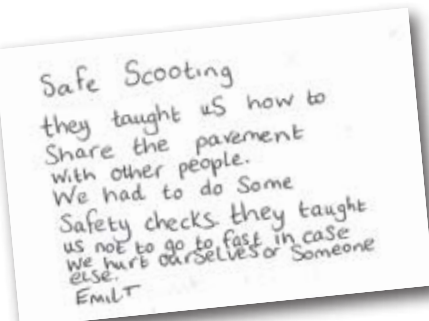 Safe Scooting
they taught us how to
Share the pavement
with other people.
We had to do Some
Safety checks. they taught
us not to go to fast in case
we hurt ourselves or Someone
else.
EmilT